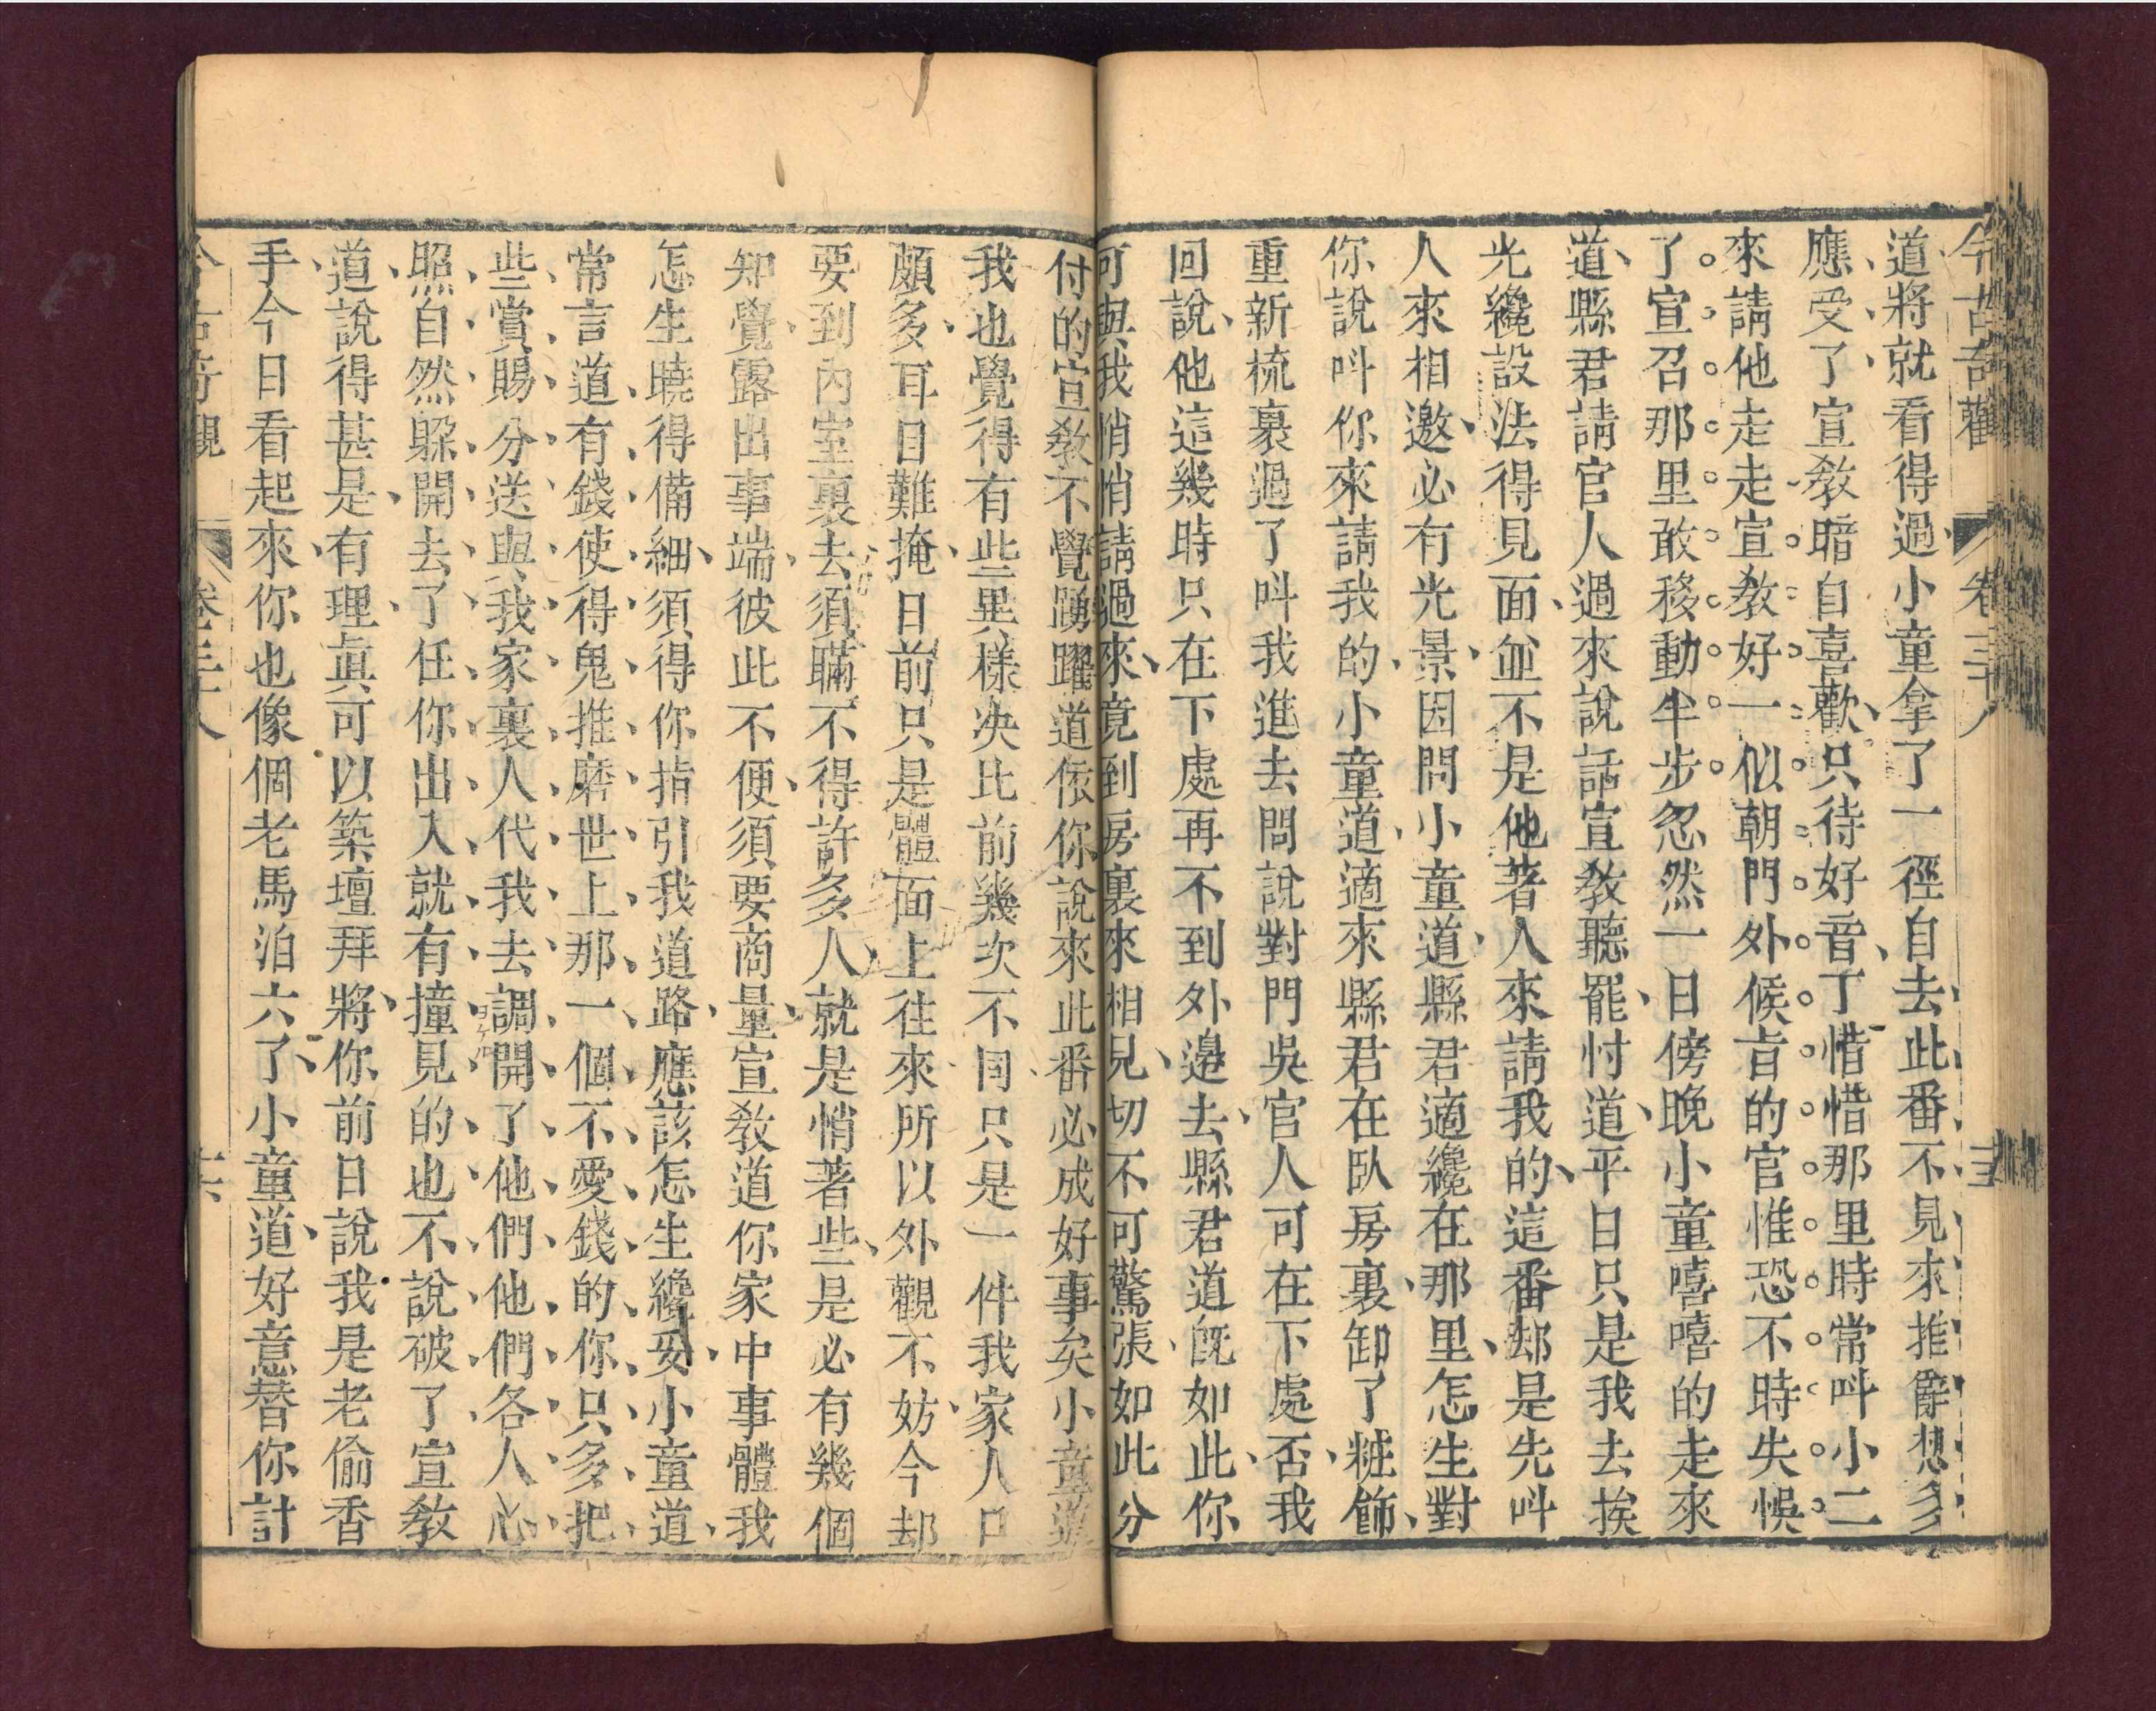 今古奇觀 卷三十八 十五
道將就看得過小童拿了一徑自去此番不見來推辭想多
應受了宣教暗自喜歡只待好音了惜惜那里時常呌小二
來請他走走宣教好一似朝門外候旨的官惟恐不時失悞
了宣召那里敢移動半步忽然一日傍晚小童嘻嘻的走來
道縣君請官人過來說話宣教聽罷忖道平日只是我去挨
光纔設法得見面並不是他著人來請我的這番却是先呌
人來相邀必有光景因問小童道縣君適纔在那里怎生對
你說呌你來請我的小童道適來縣君在臥房裏卸了粧飾
重新梳裹過了呌我進去問說對門吳官人可在下處否我
回說他這幾時只在下處再不到外邊去縣君道旣如此你
可與我悄悄請過來竟到房裏來相見切不可驚張如此分
付的宣教不覺踴躍道依你說來此番必成好事矣小童道
我也覺得有些異樣决比前幾次不同只是一件我家人口
頗多耳目難掩日前只是體面上往來所以外觀不妨今却
要到內室裏去須瞞不得許多人就是悄著些是必有幾個
知覺露出事端彼此不便須要商量宣教道你家中事體我
怎生曉得備細須得你指引我道路應該怎生纔妥小童道
常言道有錢使得鬼推磨世上那一個不愛錢的你只多把
些賞賜分送與我家裏人代我去調開了他們他們各人心
照自然躱開去了任你出入就有撞見的也不說破了宣教
道說得甚是有理眞可以築壇拜將你前日說我是老偷香
手今日看起來你也像個老馬泊六了小童道好意替你計
今古奇觀 卷三十八 十六